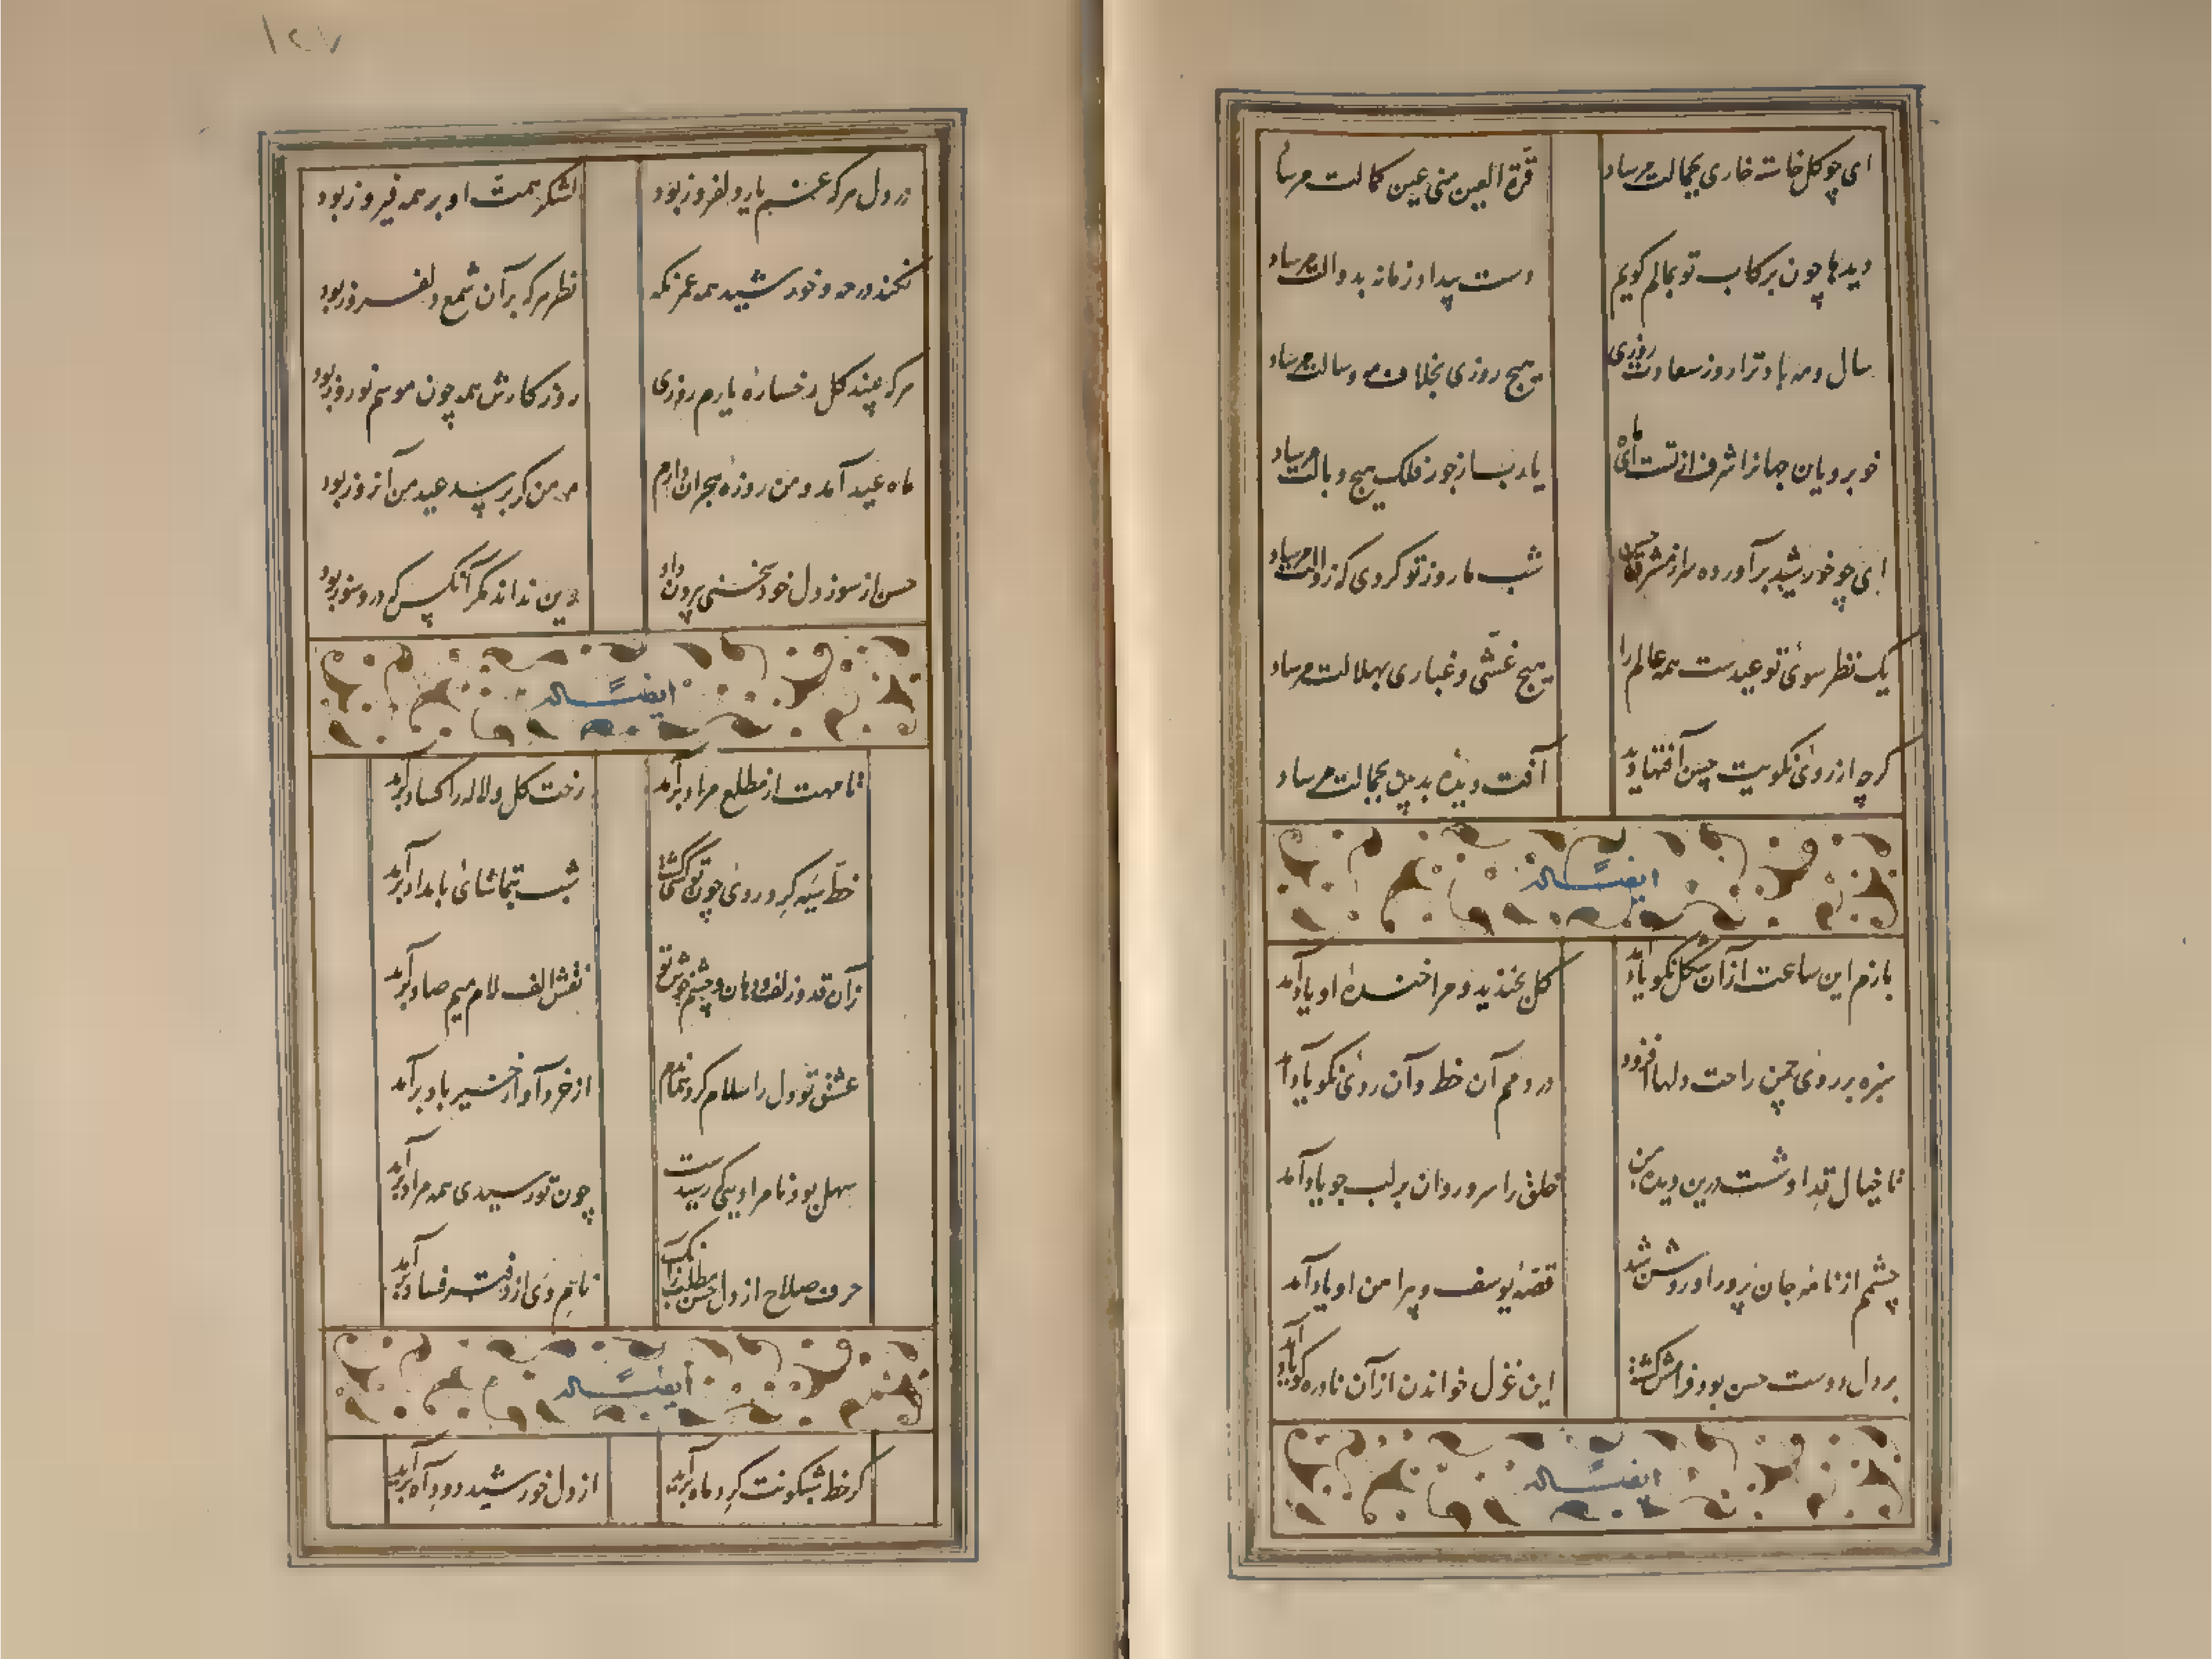 ای چو گل خاسته خاری بجمالت مرساد
قرّة العین منی عین کمالت مرسا
دیدها چون برکاب تو بمالم گویم
دست بیداد زمانه بدوالت مرساد
سال و مه باد ترا روز سعادت روزی
هیچ روزی بخلاف مه و سالت مرساد
خوبرویان جهانرا شرف از تست ای ماه
یارب از جور فلک هیچ وبالت مرساد
ای چو خورشید برآورده سر از مشرق حسن
شب ما روز تو کردی که زوالت مرساد
یک نظر سوی تو عیدست همه عالم را
هیچ غشّی و غباری بهلالت مرساد
گرچه از روی نکویت حسن آفتها دید
آفت دیدهٔ بدبین بجمالت مرساد
ایضاً له
بازم این ساعت از آن شکل نکو یاد آمد
گل بخندید و مرا خندهٔ او یاد آمد
سبزه بر روی چمن راحت دلها افزود
در دمم آن خط و آن روی نکو یاد آمد
تا خیال قد او هست درین دیدهٔ من
خلق را سرو روان بر لب جو یاد آمد
چشم از نامه جان پرور او روشن شد
قصّهٔ یوسف و پیراهن او یاد آمد
بر دل دوست حسن بود فرامش گشته
این غزل خواندن از آن نادره گو یاد آمد
ایضاً له
۱۲۷
در دل هر که غم یار دلفروز بود
لشکر همّت او بر همه فیروز بود
نکند در مه و خورشید همه عمر نگه
نظر هر که بر آن شمع دلفروز بود
هر که چیند گل رخسارهٔ یارم روزی
روز کارش همه چون موسم نوروز بود
ماه عید آمد و من روزهٔ هجران دارم
مه من گر برسد عید من آنروز بود
حسن از سوز دل خود سخنی بیرون داد
این نداند مگر آنکس که درو سوز بود
ایضاً له
تا مهت از مطلع مراد برآمد
رخت گل و لاله را کساد برآمد
خطّ سیه گرد روی چون تو کسی گشت
شب بتماشای بامداد برآمد
زان قد و زلف و دهان و چشم خوش تو
نقش الف لام میم صاد برآمد
عشق تو دل را سلام کرد نماندم
از خرد آواز خیر باد برآمد
سهل بود نامرادیی که رسیدست
چون تو رسیدی همه مراد برآمد
حرف صلاح از دل حسن مطلب زانک
نام وی از دفتر فساد برآمد
ایضاً له
گر خط شبگونت گرد ماه برآمد
از دل خورشید دود آه برآمد